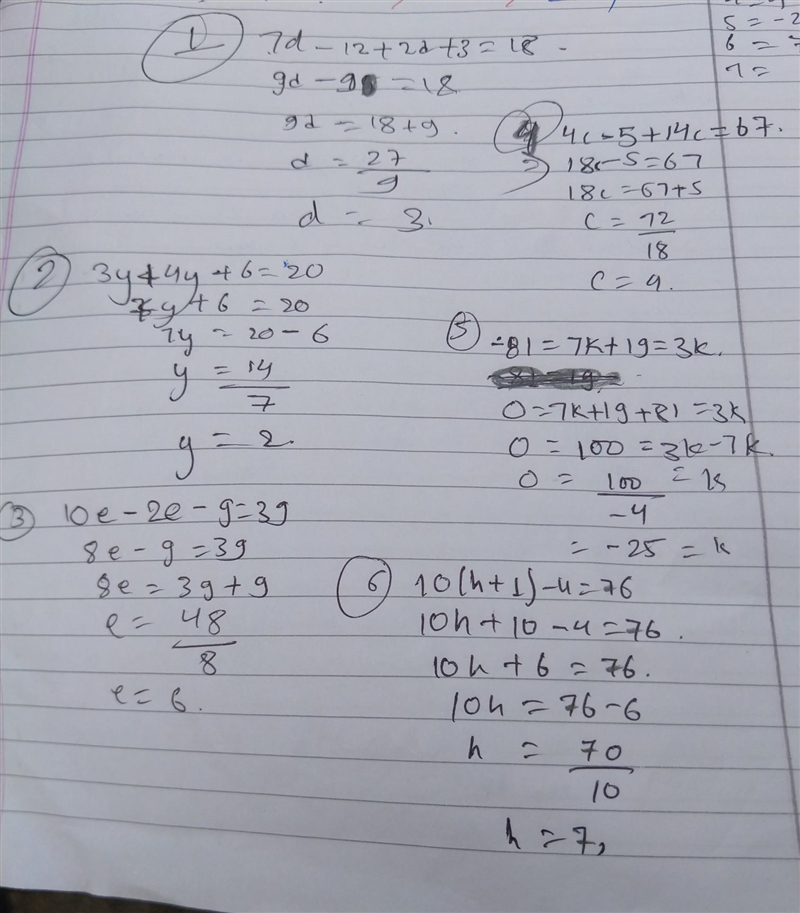 1 7d - 12 + 2d + 3 = 18
9d - 9 = 18
9d = 18 + 9.
d = 27/9
d = 3.
2 3y + 4y + 6 = 20
7y + 6 = 20
7y = 20 - 6
y = 14/7
y = 2.
3 10e - 2e - 9 = 39
8e - 9 = 39
8e = 39 + 9
e = 48/8
e = 6.
4 4c - 5 + 14c = 67.
18c - 5 = 67
18c = 67 + 5
c = 72/18
c = 4.
5 -81 = 7k + 19 = 3k.
0 = 7k + 19 + 81 = 3k
0 = 100 = 3k - 7k.
0 = 100/-4 = k
= -25 = k
6 10(h + 1) - 4 = 76
10h + 10 - 4 = 76.
10h + 6 = 76.
10h = 76 - 6
h = 70/10
h = 7,
5 = -2
6 = 7
7 =